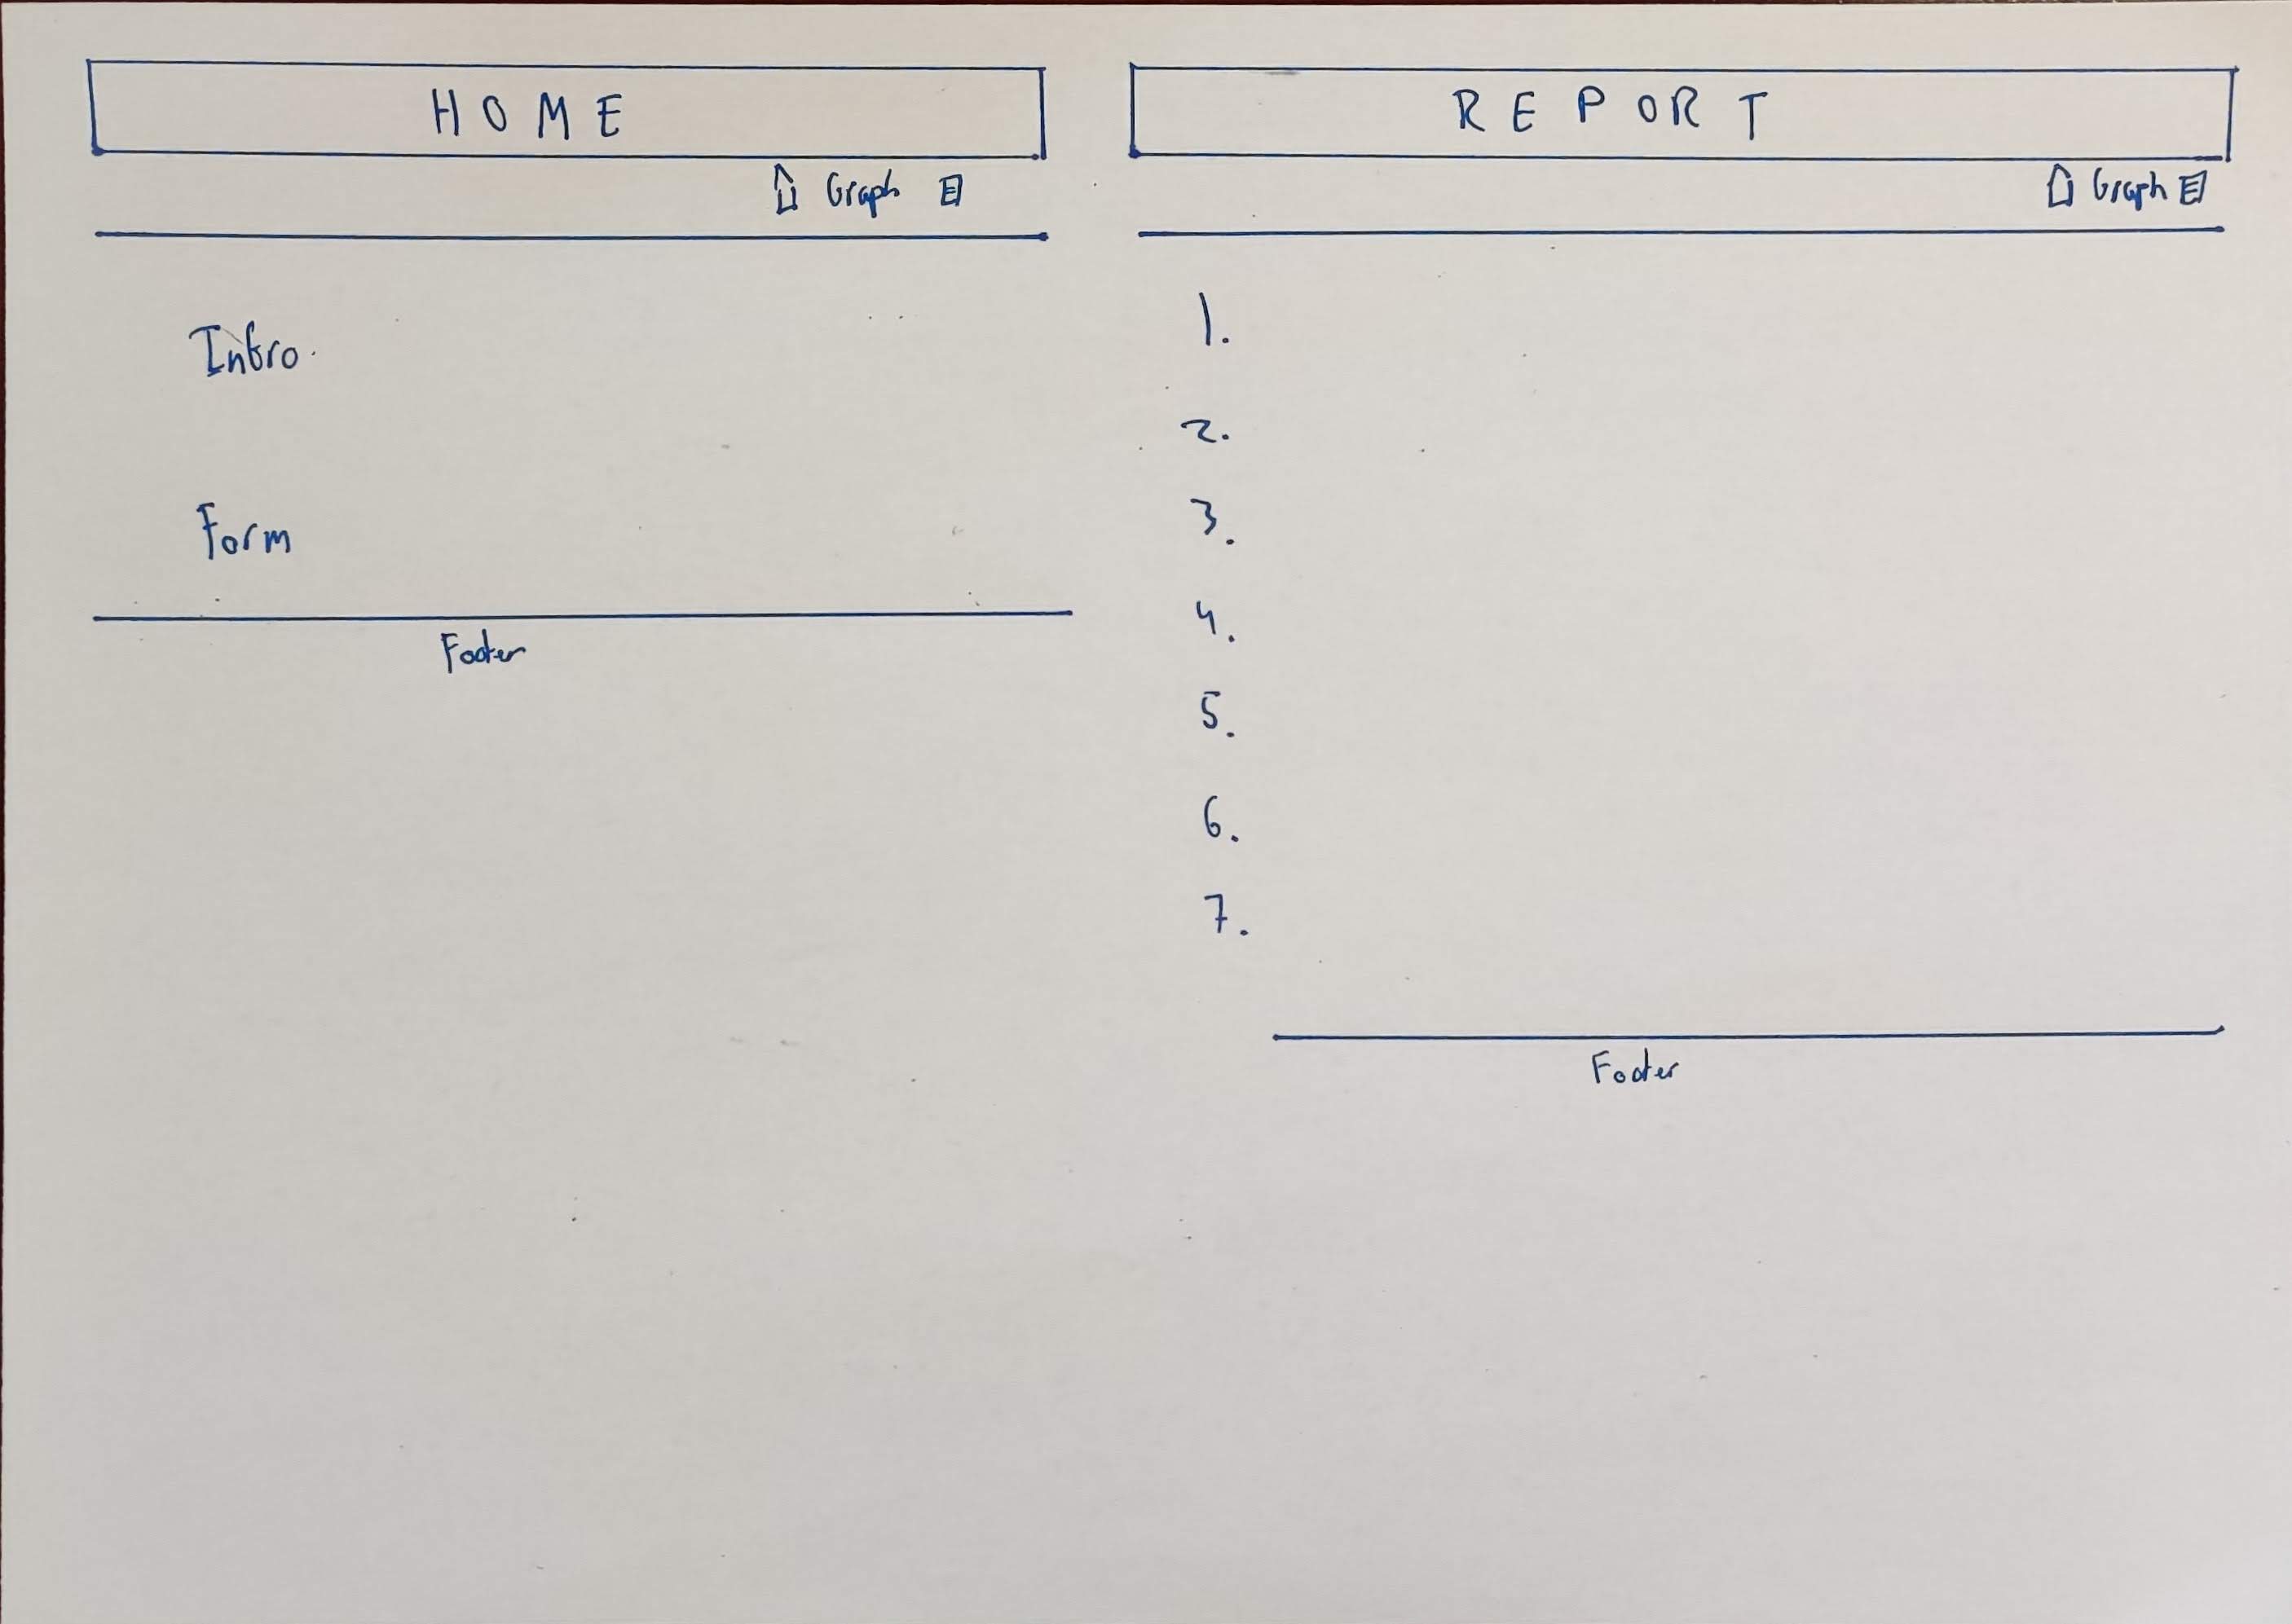 HOME
Graph
Intro.
Form
Footer
REPORT
Graph
1.
2.
3.
4.
5.
6.
7.
Footer